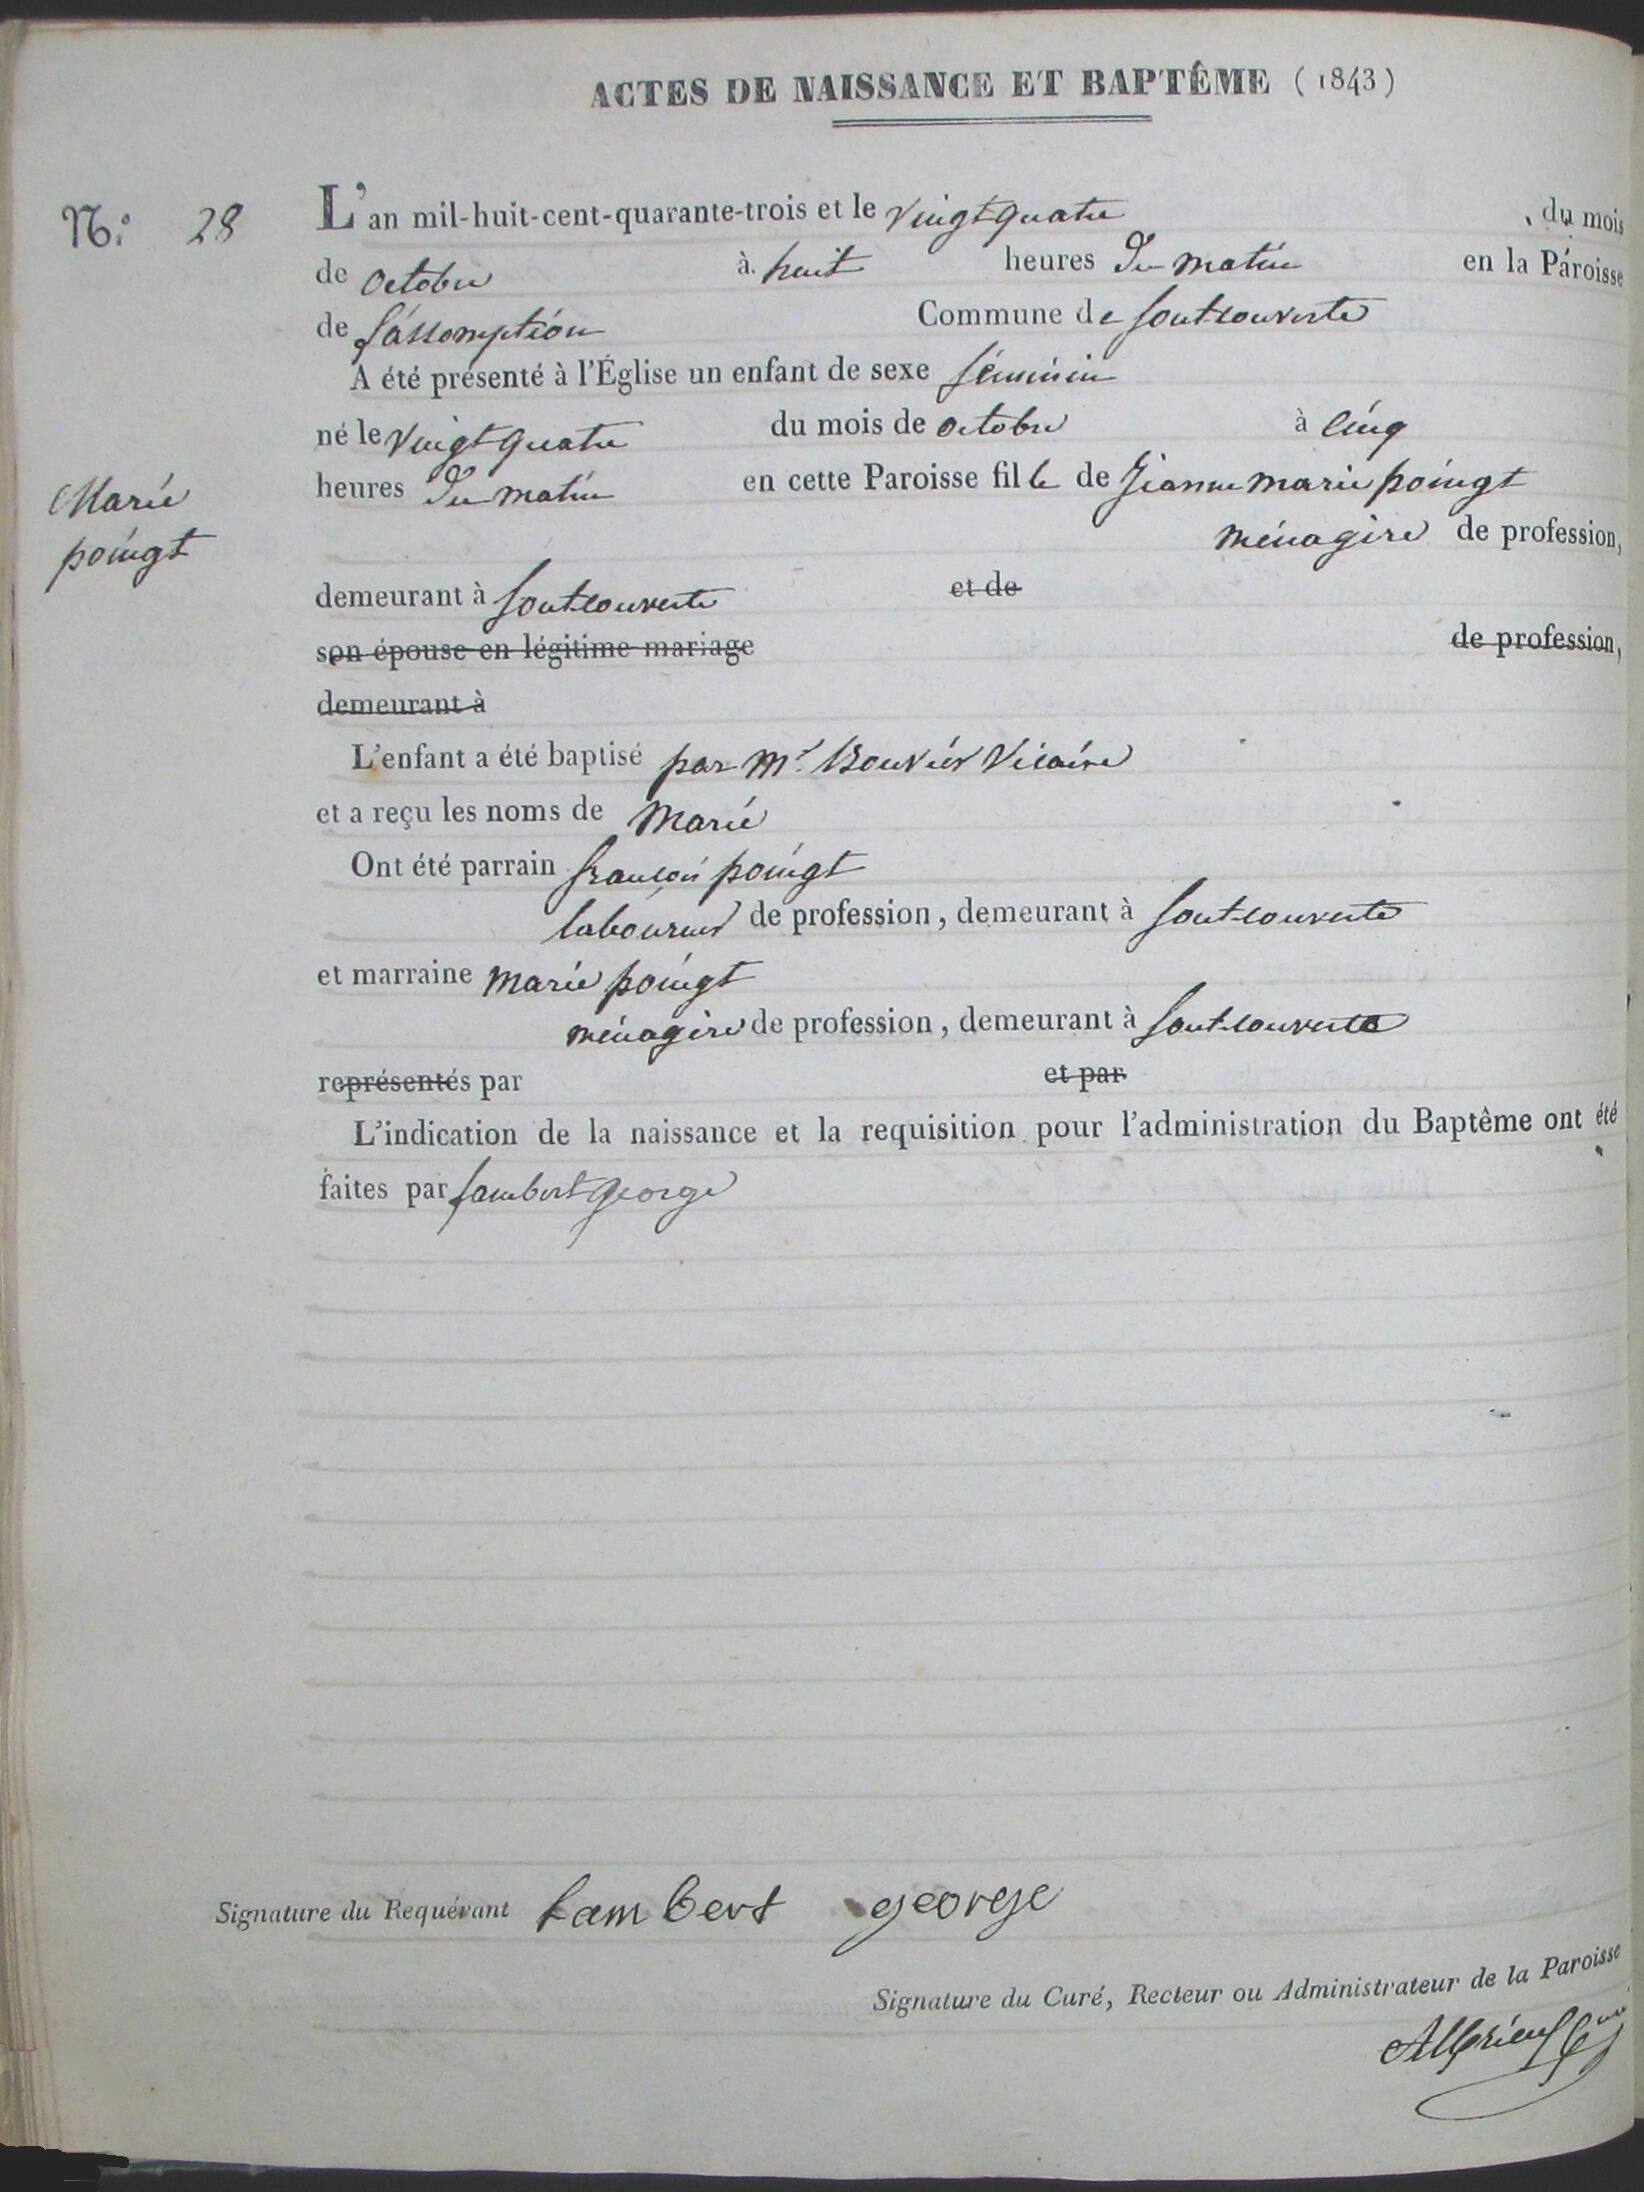 ACTES DE NAISSANCE ET BAPTÊME (1843)
N.o 28
L'an mil-huit-cent-quarante-trois et le vingt quatre du mois
de octobre à huit heures du matin en la Paroisse
de l'assomption Commune de font-couverte
A été présenté à l'Église un enfant de sexe féminin
né le vingt quatre du mois de octobre à cinq
heures du matin en cette Paroisse fille de Jeanne marie poingt
Marie
poingt
ménagère de profession,
demeurant à font-couverte et de
son épouse en légitime mariage de profession,
demeurant à
L'enfant a été baptisé par mr. Bouvier Vicaire
et a reçu les noms de Marie
Ont été parrain françois poingt
laboureur de profession, demeurant à font-couverte
et marraine marie poingt
ménagère de profession, demeurant à font-couverte
représentés par et par
L'indication de la naissance et la requisition pour l'administration du Baptême ont été
faites par Lambert george
Signature du Requérant Lambert george
Signature du Curé, Recteur ou Administrateur de la Paroisse